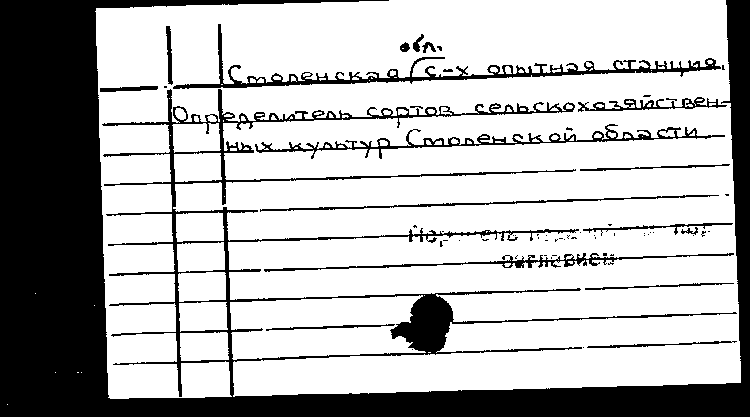 обл.
Смоленская с-х. опытная станция.
Определитель сортов сельскохозяйствен-
ных культур Смоленской области
под
заглавием